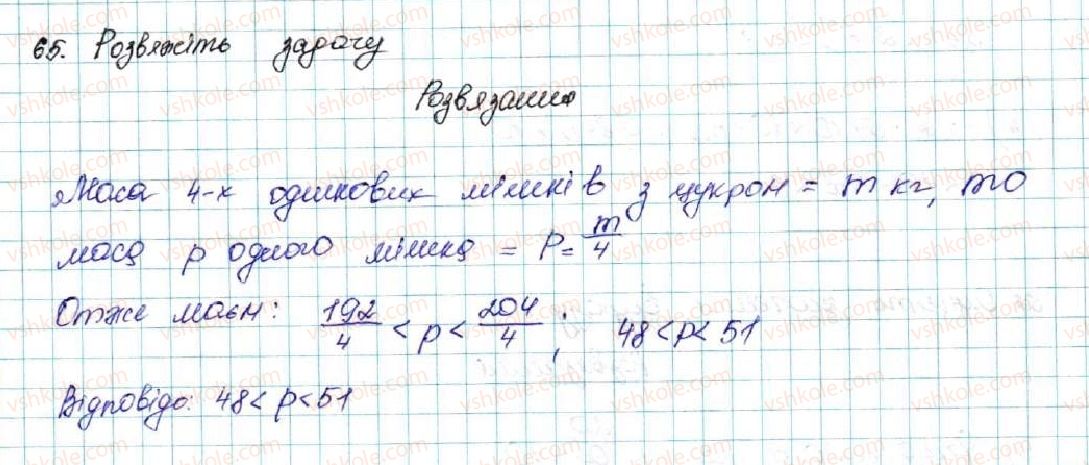 65. Розвяжіть задачу
Розвязання
Маса 4-х однакових мішків з цукром = m кг, то
маса p одного мішка = P = m/4
Отже маєм: 192/4 < p < 204/4 ; 48 < p < 51
Відповідь: 48 < p < 51